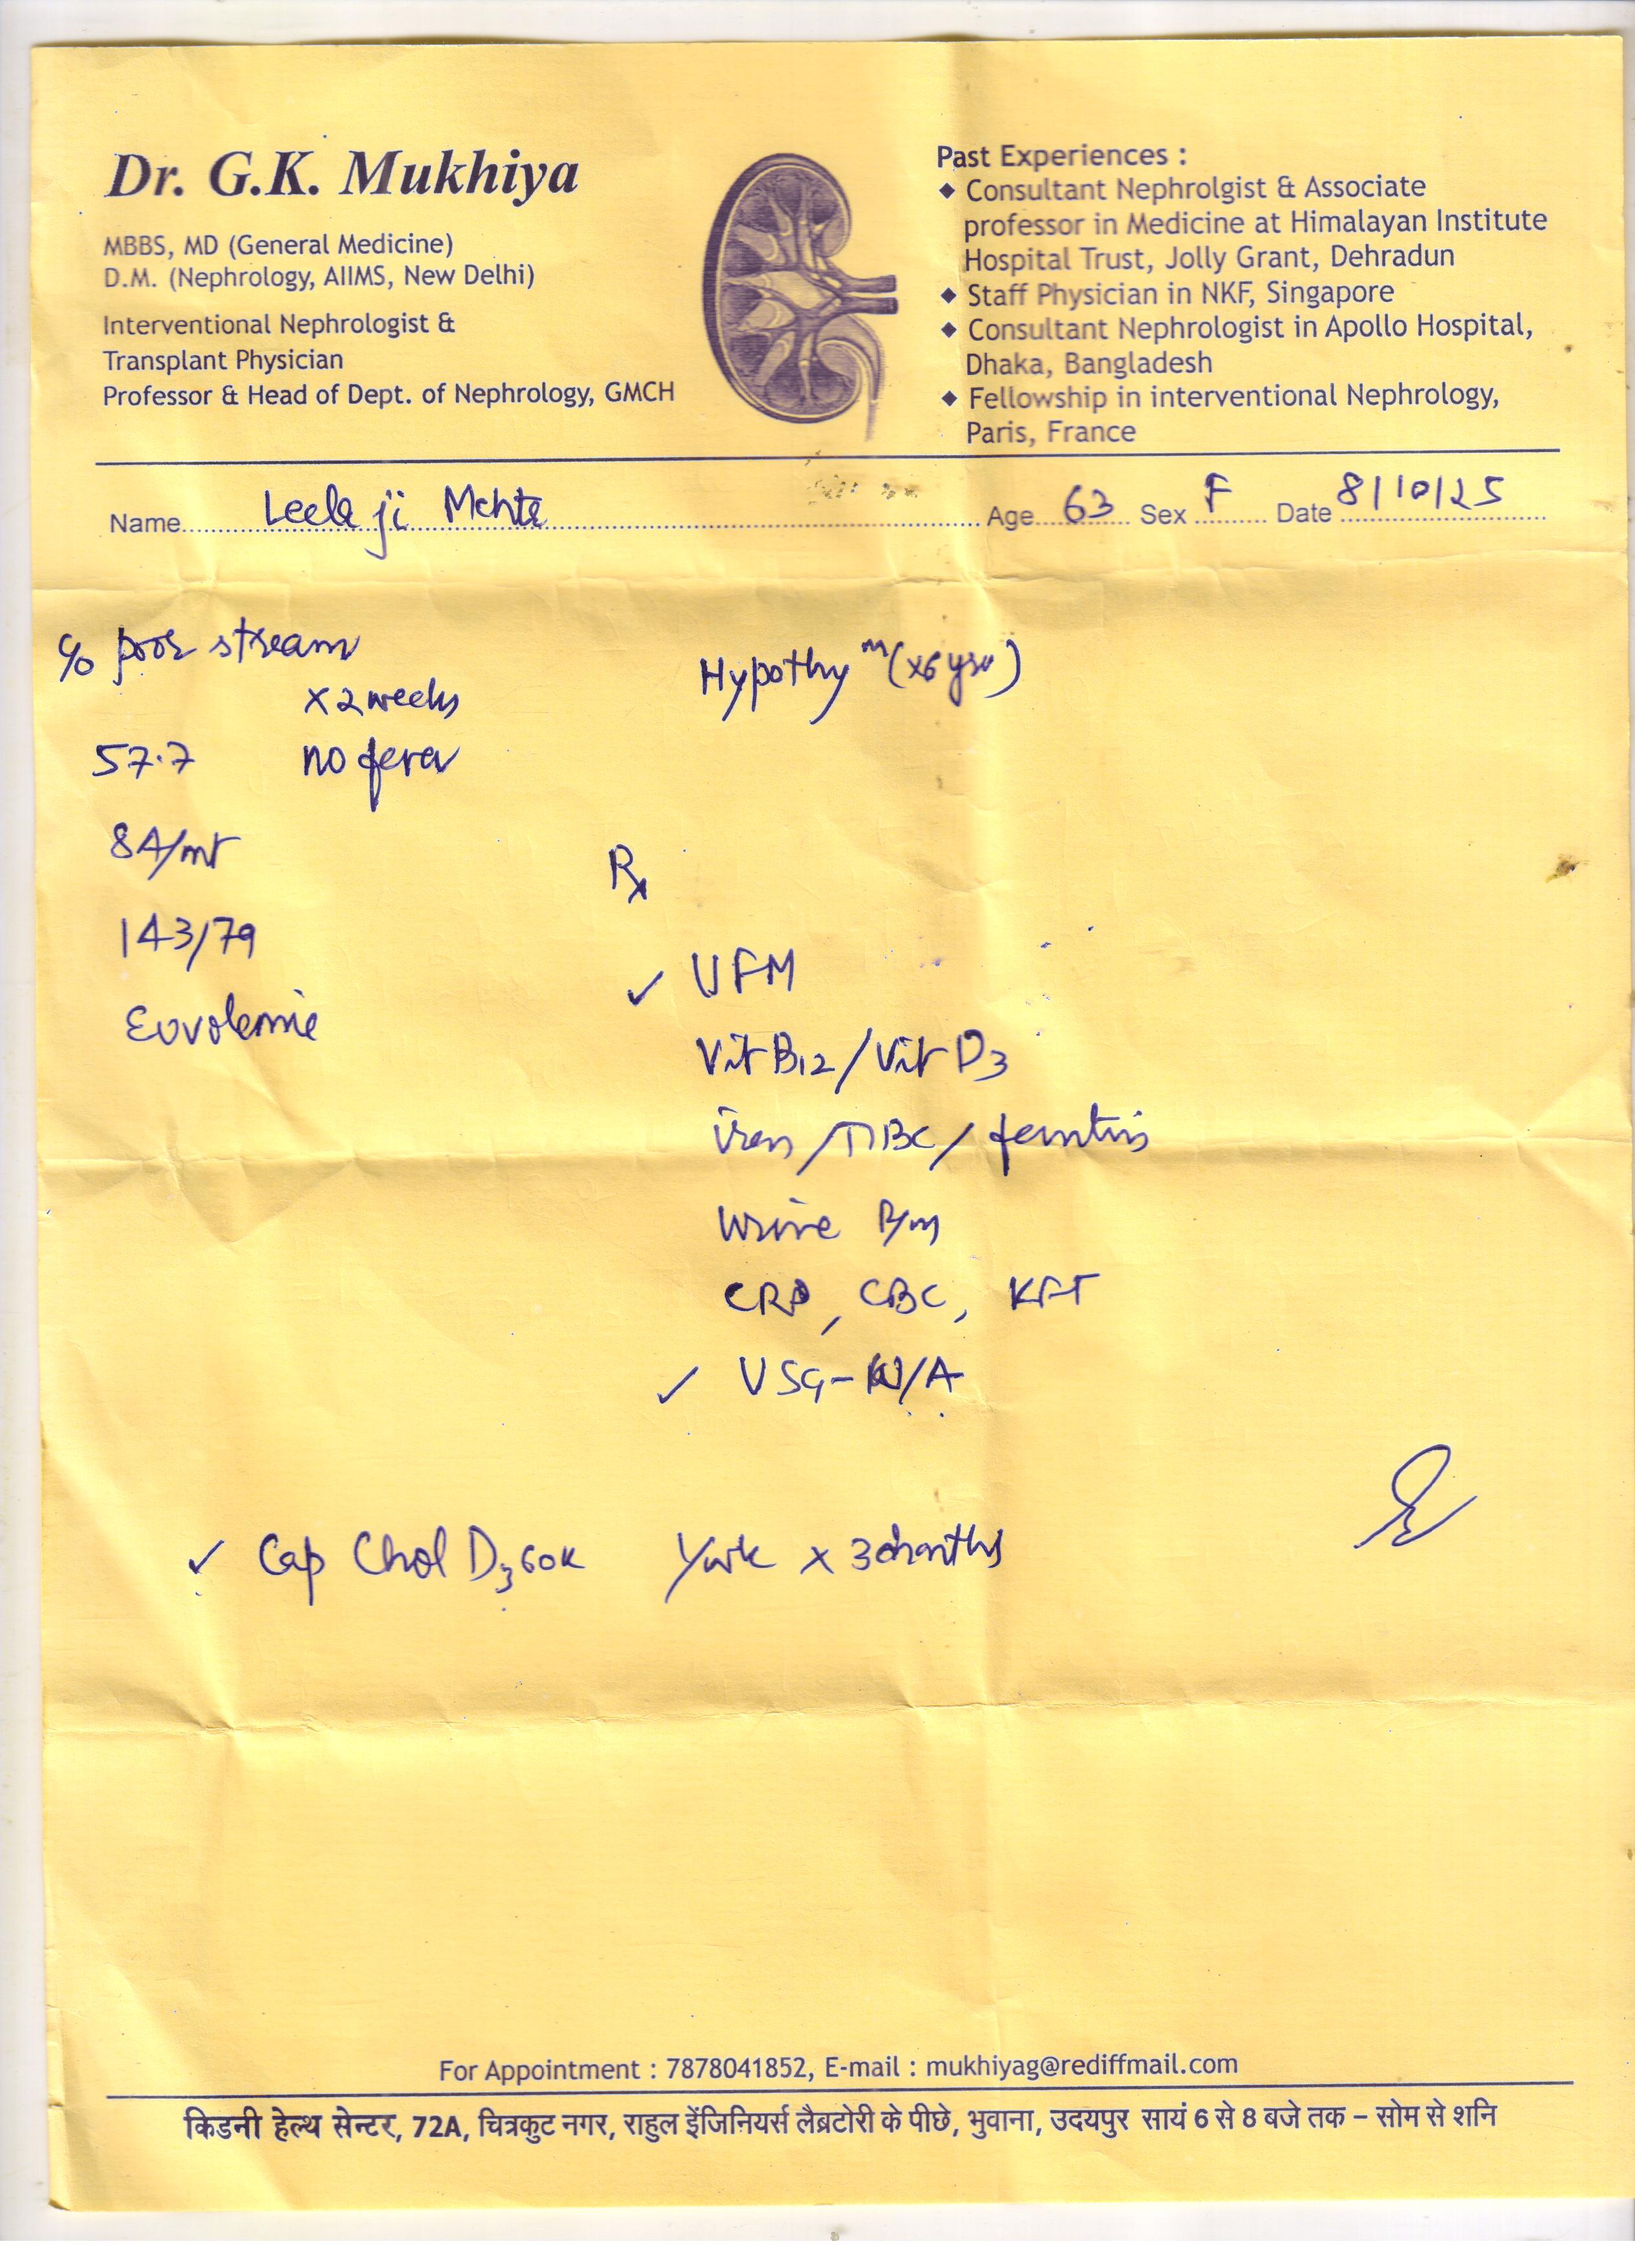 Dr. G.K. Mukhiya
MBBS, MD (General Medicine)
D.M. (Nephrology, AIIMS, New Delhi)
Interventional Nephrologist &
Transplant Physician
Professor & Head of Dept. of Nephrology, GMCH
Past Experiences :
◆ Consultant Nephrolgist & Associate
professor in Medicine at Himalayan Institute
Hospital Trust, Jolly Grant, Dehradun
◆ Staff Physician in NKF, Singapore
◆ Consultant Nephrologist in Apollo Hospital,
Dhaka, Bangladesh
◆ Fellowship in interventional Nephrology,
Paris, France
Name Leela ji Mehta Age 63 Sex F Date 8/10/25
c/o poor stream
x 2 weeks
57.7 no fever
84/mt
143/79
Euvolemic
Hypothy m (x6 yrs)
Rx
✓ UFM
Vit B12 / Vit D3
iron / TIBC / ferritin
Urine R/m
CRP, CBC, KFT
✓ USG - W/A
✓ Cap Chol D3 60K x 3 months
For Appointment : 7878041852, E-mail : mukhiyag@rediffmail.com
किडनी हेल्थ सेन्टर, 72A, चित्रकुट नगर, राहुल इंजिनियर्स लैब्रटोरी के पीछे, भुवाना, उदयपुर सायं 6 से 8 बजे तक – सोम से शनि